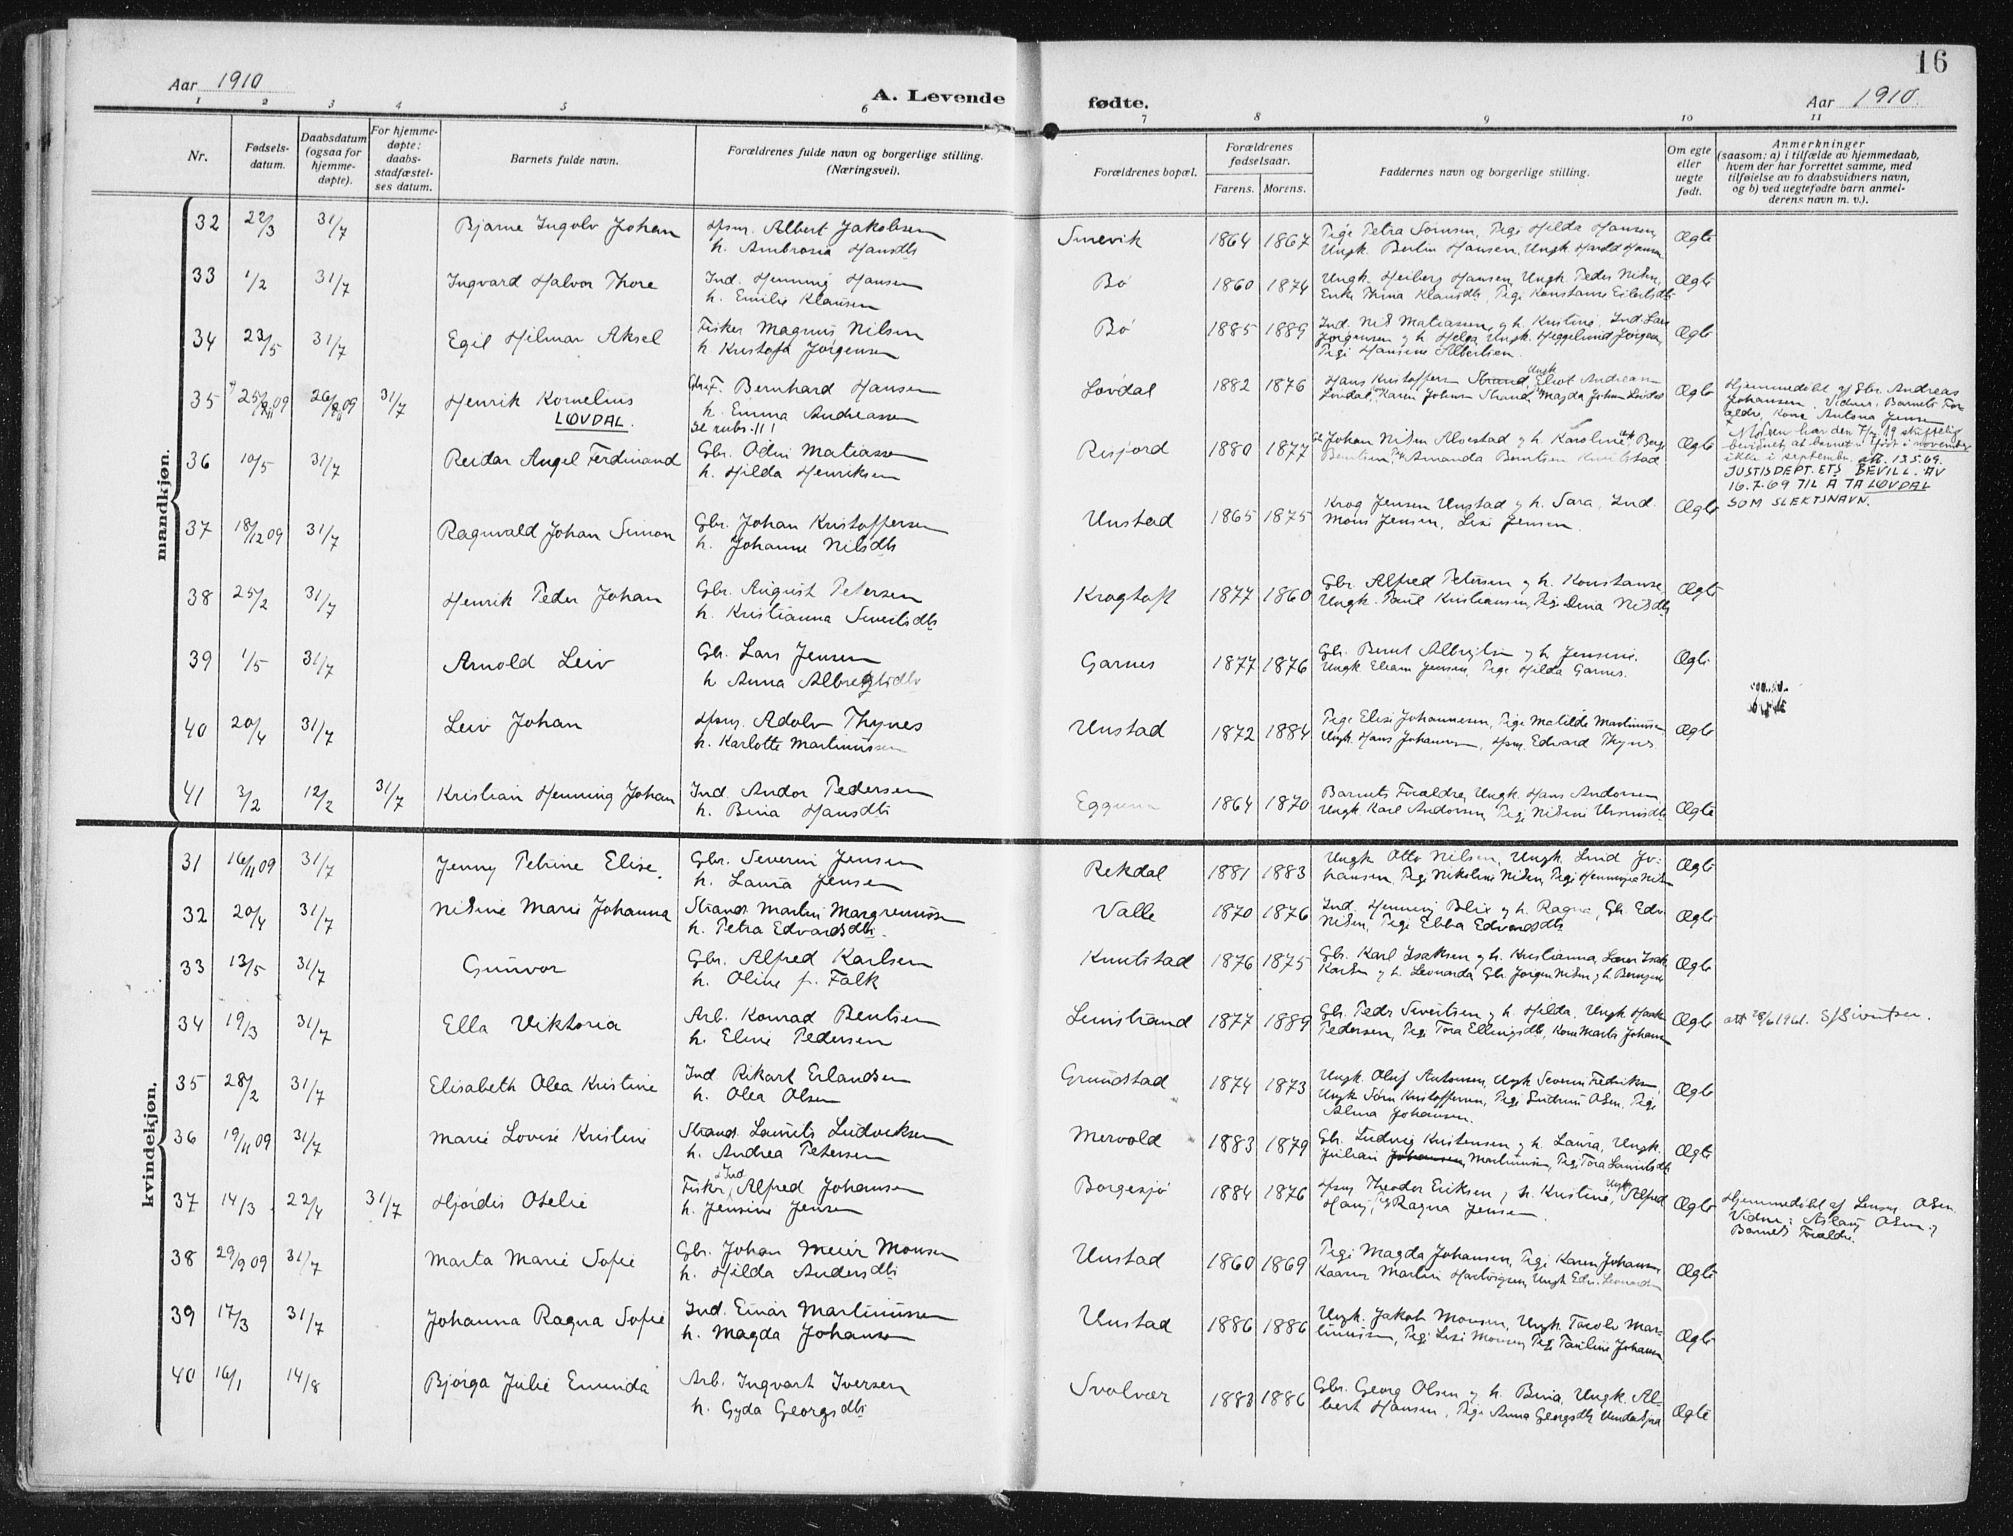 16
Aar 1910
A. Levende fødte.
Aar 1910.
1 2 3 4 5 6 7 8 9 10 11
Nr.
Fødsels-
datum.
Daabsdatum
(ogsaa for
hjemme-
døpte).
For hjemme-
døpte:
daabs-
stadfæstel-
ses datum.
Barnets fulde navn.
Forældrenes fulde navn og borgerlige stilling.
(Næringsvei).
Forældrenes bopæl.
Forældrenes
fødselsaar.
Farens. Morens.
Faddernes navn og borgerlige stilling.
Om egte
eller
uegte
født.
Anmerkninger
(saasom: a) i tilfælde av hjemmedaab,
hvem der har forrettet samme, med
tilføielse av to daabsvidners navn,
og b) ved uegtefødte barn anmel-
derens navn m. v.).
mandkjøn.
32 22/3 31/7 Bjarne Ingolv Johan Hsm. Albert Jakobsen Smevik 1864 1867 Pige Petra Sørnsen, Pige Hilda Hansen, Ægte
h. Ambrosia Hansdtr Ungk. Berlin Hansen, Ungk. Harald Hansen
33 1/2 31/7 Ingvard Halvor Thore Ind. Henning Hansen Bø 1860 1874 Ungk. Heiberg Hansen, Ungk Peder Nilsen, Ægte
h. Emilie Klausen Enke Trina Klausdtr, Pige Konstanse Eilertsdtr
34 23/5 31/7 Egil Hilmar Aksel Fisker Magnus Nilsen Bø 1885 1889 Ind. Nils Matiassen og h. Kristine, Ind. Lars Ægte
h. Kristofa Jørgensen Jørgensen og h. Helga, Ungk. Heggelund Jørgensen,
Pige Hansine Albertsen.
35 25/9 09 26/9 09 31/7 Henrik Kornelius Gbr. F. Bernhard Hansen Løvdal 1882 1876 Hans Kristoffersen Strand, Ungk Eliot Andreassen Ægte Hjemmedøbt af Gbr. Andreas
LØVDAL. h. Emma Andreassen Løvdal, Karen Johnsen Strand, Magda Johansen Løvdal Johansen. Vidner: Barnets For-
Se rubr. 11! ældre, Kone Antona Jensen
36 10/5 31/7 Reidar Angel Ferdinand Gbr. Odin Matiassen Risjord 1880 1877 Johan Nilsen Alvestad og h. Karoline, Ungk Berge Ægte Moren har den 7/7 19 skriftelig
h. Hilda Henriksen Bentsen, Pige Amanda Bentsen Knutstad bevidnet, at barnet er født i november
ikke i september. att. 13.5.69.
JUSTISDEPT.ETS BEVILL. AV
16.7.69 TIL Å TA LØVDAL
SOM SLEKTSNAVN.
37 18/12 09 31/7 Ragnvald Johan Simon Gbr. Johan Kristoffersen Unstad 1865 1875 Krog Jensen Unstad og h. Sara, Ind. Ægte
h. Johanne Nilsdtr Mons Jensen, Lise Jensen.
38 25/2 31/7 Henrik Peder Johan Gbr. August Petersen Krogtoft 1877 1860 Gbr. Alfred Petersen og h. Konstanse, Ægte
h. Kristianna Sivertsdtr Ungk. Paul Kristiansen, Pige Dina Nilsdtr
39 1/5 31/7 Arnold Leiv Gbr. Lars Jensen Garnes 1877 1876 Gbr. Bernt Albrigtsen og h. Jensine. Ægte
h Anna Albregtsdtr Ungk Eliam Jensen, Pige Hilda Garnes.
40 20/4 31/7 Leiv Johan Hsm. Adolv Thynes Unstad 1872 1884 Pige Elise Johannesen, Pige Matilde Martinussen Ægte
h. Karlotte Martinussen Ungk. Hans Johannesen, Hsm. Edvard Thynes
41 3/2 12/2 31/7 Kristian Henning Johan Ind. Andor Pedersen Eggum 1864 1870 Barnets Forældre, Ungk. Hans Andorsen Ægte
h. Bina Hansdtr Ungk Karl Andorsen, Pige Nilsine
kvindekjøn.
31 16/11 09 31/7 Jenny Petrine Elise. Gbr. Severin Jensen Rekdal 1881 1883 Ungk Otto Nilsen, Ungk. Lind Jo- Ægte
h. Laura Jensen hansen, Pige Nikoline Nilsen, Pige Henningine Nilsen
32 20/4 31/7 Nilsine Marie Johanna Strands. Martin Margremussen Valle 1870 1876 Ind. Henning Blix og h. Ragna, Gbr. Edv. Ægte
h. Petra Edvardsdtr. Nilsen, Pige Ebba Edvardsdtr
33 13/5 31/7 Gunvor Gbr. Alfred Karlsen Knutstad 1876 1875 Gbr. Karl Isaksen og h. Kristianna, Lærer Isak Ægte
h. Oline f. Falk Karlsen og h. Leonarda, Gbr. Jørgen Nilsen og h.
34 19/3 31/7 Ella Viktoria Arb. Konrad Bentsen Limstrand 1877 1889 Gbr. Peder Sivertsen og h. Hilda, Ungk Ægte att 28/6 1961. S/Sivertsen.
h. Eline Pedersen Pedersen, Pige Tora Ellingsdtr, Kone Marta Johansen
35 28/2 31/7 Elisabeth Olea Kristine Ind. Rikart Erlandsen Grundstad 1874 1873 Ungk. Oluf Antonsen, Ungk Severin Fredriksen, Ægte
h. Olea Olsen Ungk Sørn Kristoffersen, Pige Olsen, Pige
Alma Johansen.
36 19/11 09 31/7 Marie Lovise Kristine Strands. Laurits Ludviksen Mervold 1883 1879 Gbr. Ludvig Kristensen og h. Laura, Ungk. Ægte
h. Andrea Petersen Julian Johansen, Martinusen, Pige Tora Lauritsdtr
37 14/3 22/4 31/7 Hjørdis Otelie Fisker, Ind Alfred Johansen Borgesjø 1884 1876 Hsm Theodor Eriksen og h. Kristine, Ungk Alfred Ægte Hjemmedøbt af Lensm. Olsen.
h. Jensine Jensen Hang, Pige Ragna Jensen. Vidner: Aslaug Olsen og
Barnets Forældre.
38 29/9 09 31/7 Marta Marie Sofie Gbr. Johan Meier Monsen Unstad 1860 1869 Pige Magda Johansen, Pige Karen Johansen, Ægte
h. Hilda Andersdtr Kaarer Martin Hartvigsen, Ungk Edv. Leonardsen
39 17/3 31/7 Johanna Ragna Sofie Ind. Einar Martinussen Unstad 1886 1886 Ungk. Jakob Monsen, Ungk. Torolv Mar- Ægte
h. Magda Johansen tinussen, Pige Lise Monsen, Pige Pauline Johansen
40 16/1 14/8 Bjørga Julie Eminda Arb. Ingvart Iversen Svolvær 1883 1886 Gbr. Georg Olsen og h. Bina, Ungk. Al- Ægte
h. Gyda Georgsdtr bert Hansen, Pige Anna Georgsdtr